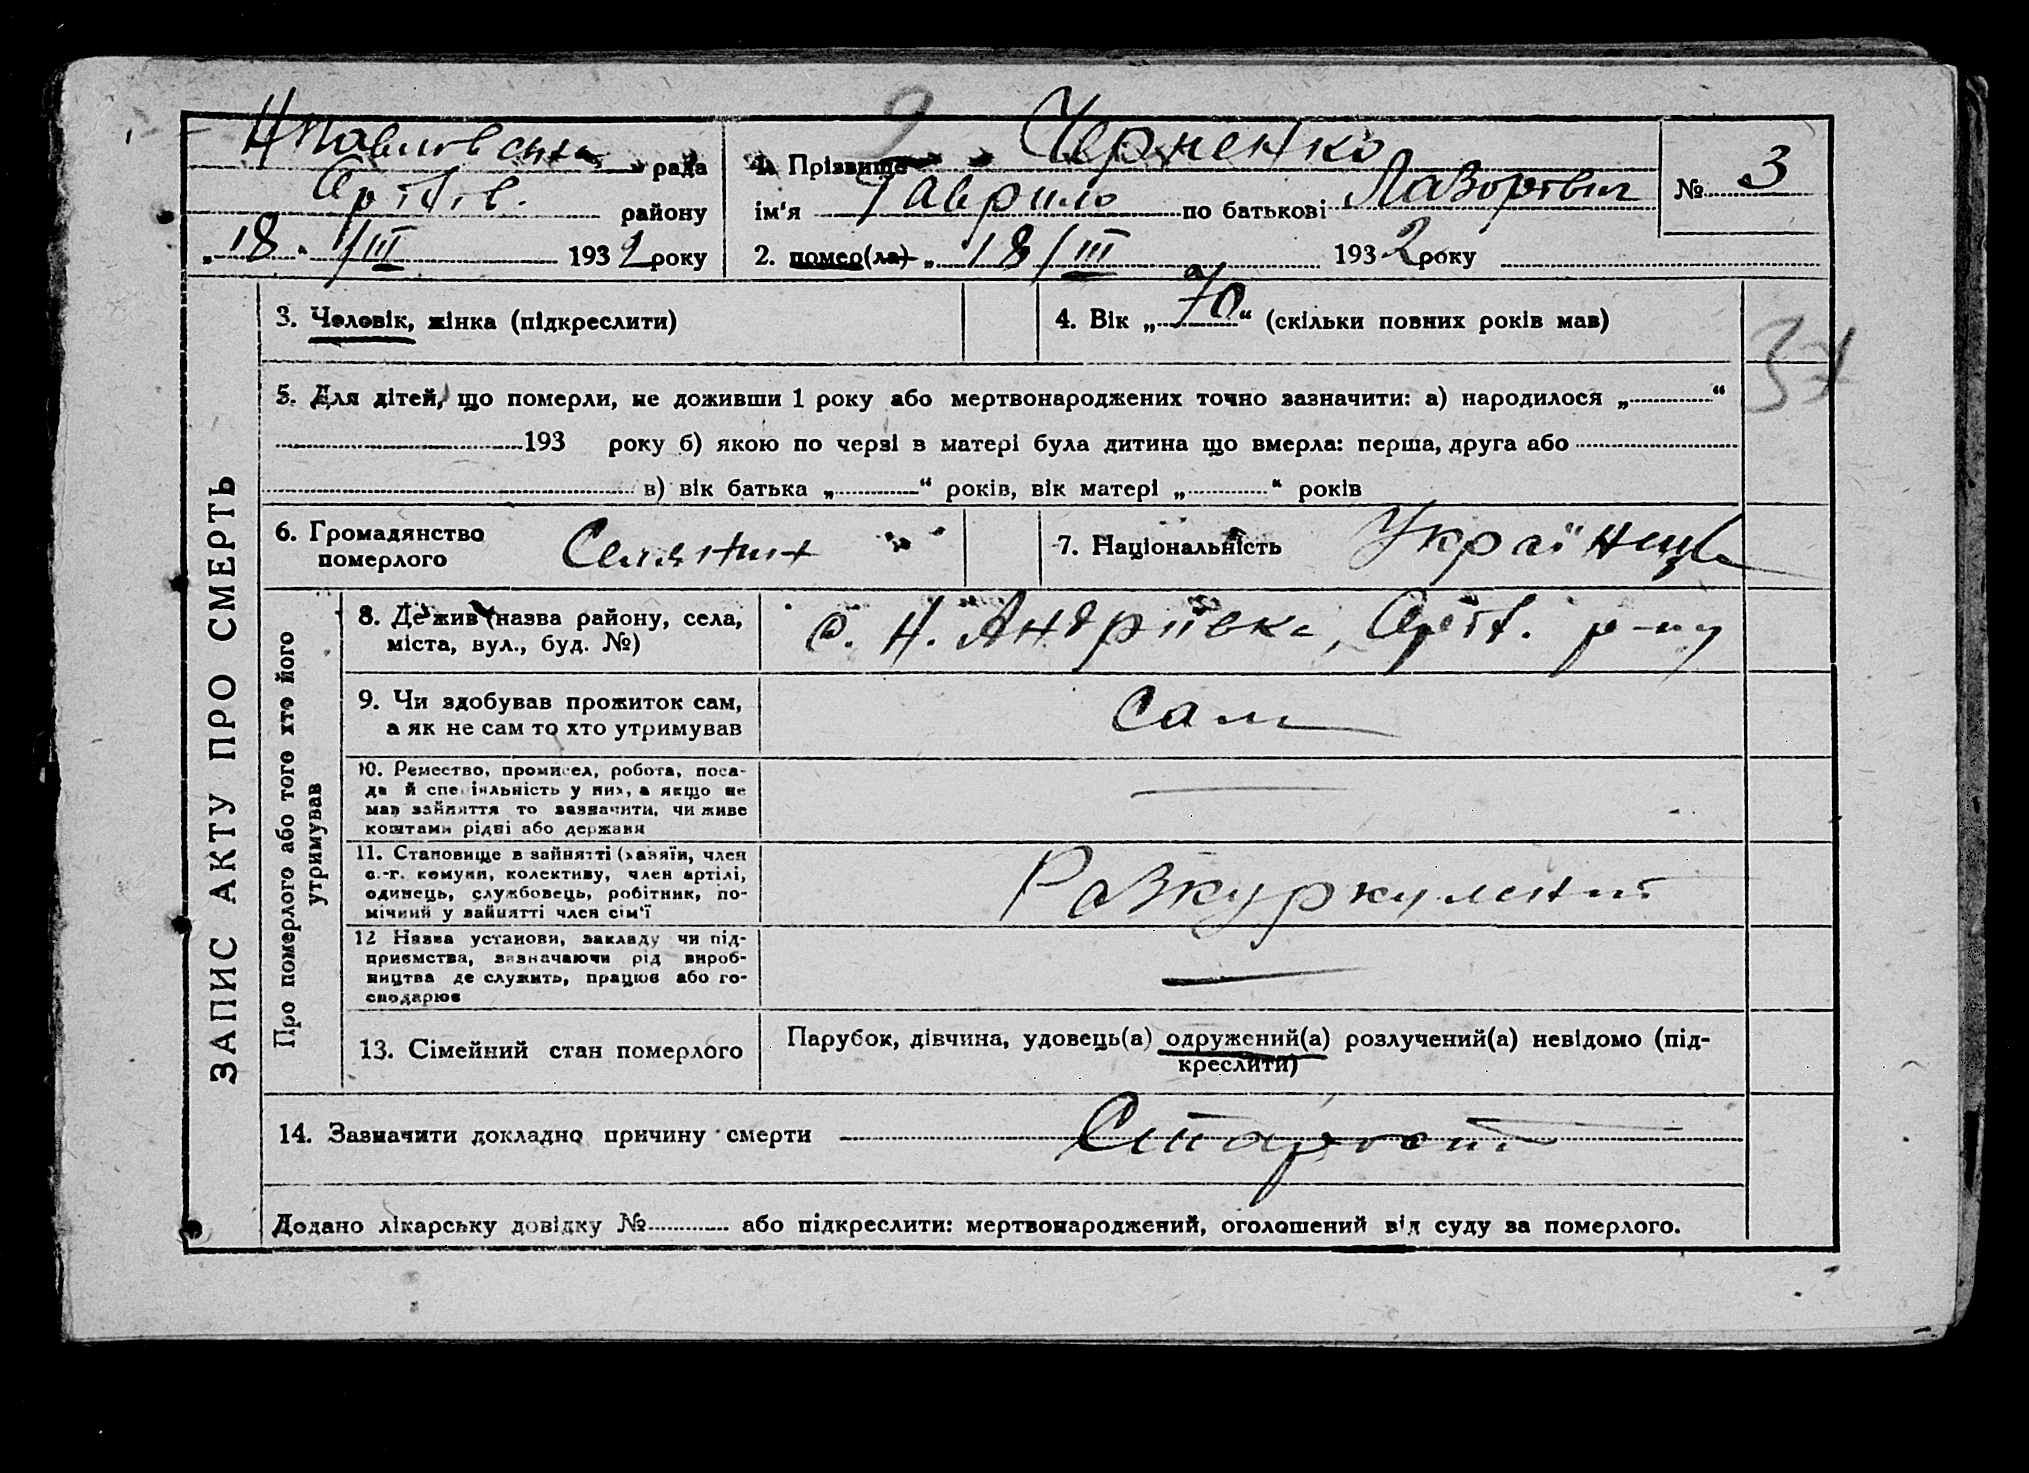 Н Павлівська рада
Артів. району
„18“ /III 1932 року
9
1. Прізвище Черненко
ім'я Гаврило по батькові Лазорович
№ 3
2. помер(ла) „18/III 1932 року
3. Чоловік, жінка (підкреслити)
4. Вік „70“ (скільки повних років мав)
37
5. Для дітей, що померли, не доживши 1 року або мертвонароджених точно зазначити: а) народилося „ “
193 року б) якою по черзі в матері була дитина що вмерла: перша, друга або
в) вік батька „ “ років, вік матері „ “ років
ЗАПИС АКТУ ПРО СМЕРТЬ
6. Громадянство
померлого
Селянин
7. Національність Українець
Про померлого або того хто його
утримував
8. Де жив (назва району, села,
міста, вул., буд. №)
с. Н. Андріївка, Арт. р-ну
9. Чи здобував прожиток сам,
а як не сам то хто утримував
Сам
10. Ремество, промисел, робота, поса-
да й спеціяльність у них, а якщо не
мав зайняття то зазначити, чи живе
коштами рідні або держави
11. Становище в зайнятті (хазяїн, член
с.-г. комуни, колективу, член артілі,
одинець, службовець, робітник, по-
мічний у зайнятті член сім'ї
Розкуркулений
12 Назва установи, закладу чи під-
приємства, зазначаючи рід вироб-
ництва де служить, працює або го-
сподарює
13. Сімейний стан померлого
Парубок, дівчина, удовець(а) одружений(а) розлучений(а) невідомо (під-
креслити)
14. Зазначити докладно причину смерти Старості
Додано лікарську довідку № або підкреслити: мертвонароджений, оголошений від суду за померлого.